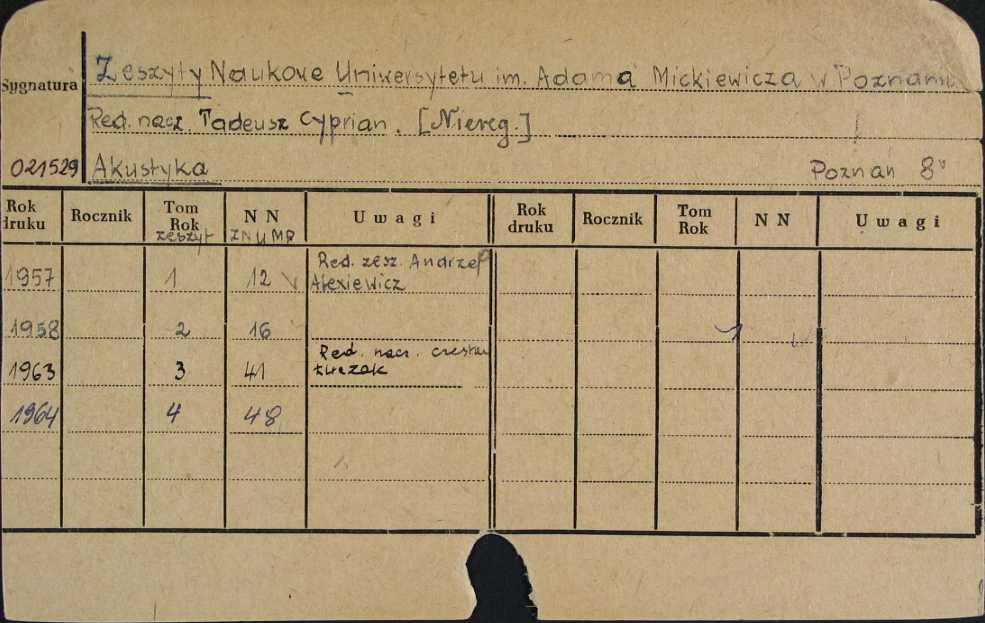 Zeszyty Naukowe Uniwersytetu im. Adama Mickiewicza w Poznaniu
Sygnatura
Red. nacz. Tadeusz Cyprian. [Niereg.]
021529 Akustyka Poznań 8°
Rok druku Rocznik Tom Rok zeszyt N N ZNUMP Uwagi Rok druku Rocznik Tom Rok N N Uwagi
1957 1 12 Red. zesz. Andrzej
Alexiewicz
1958 2 16
1963 3 41 Red. nacz.
1964 4 48